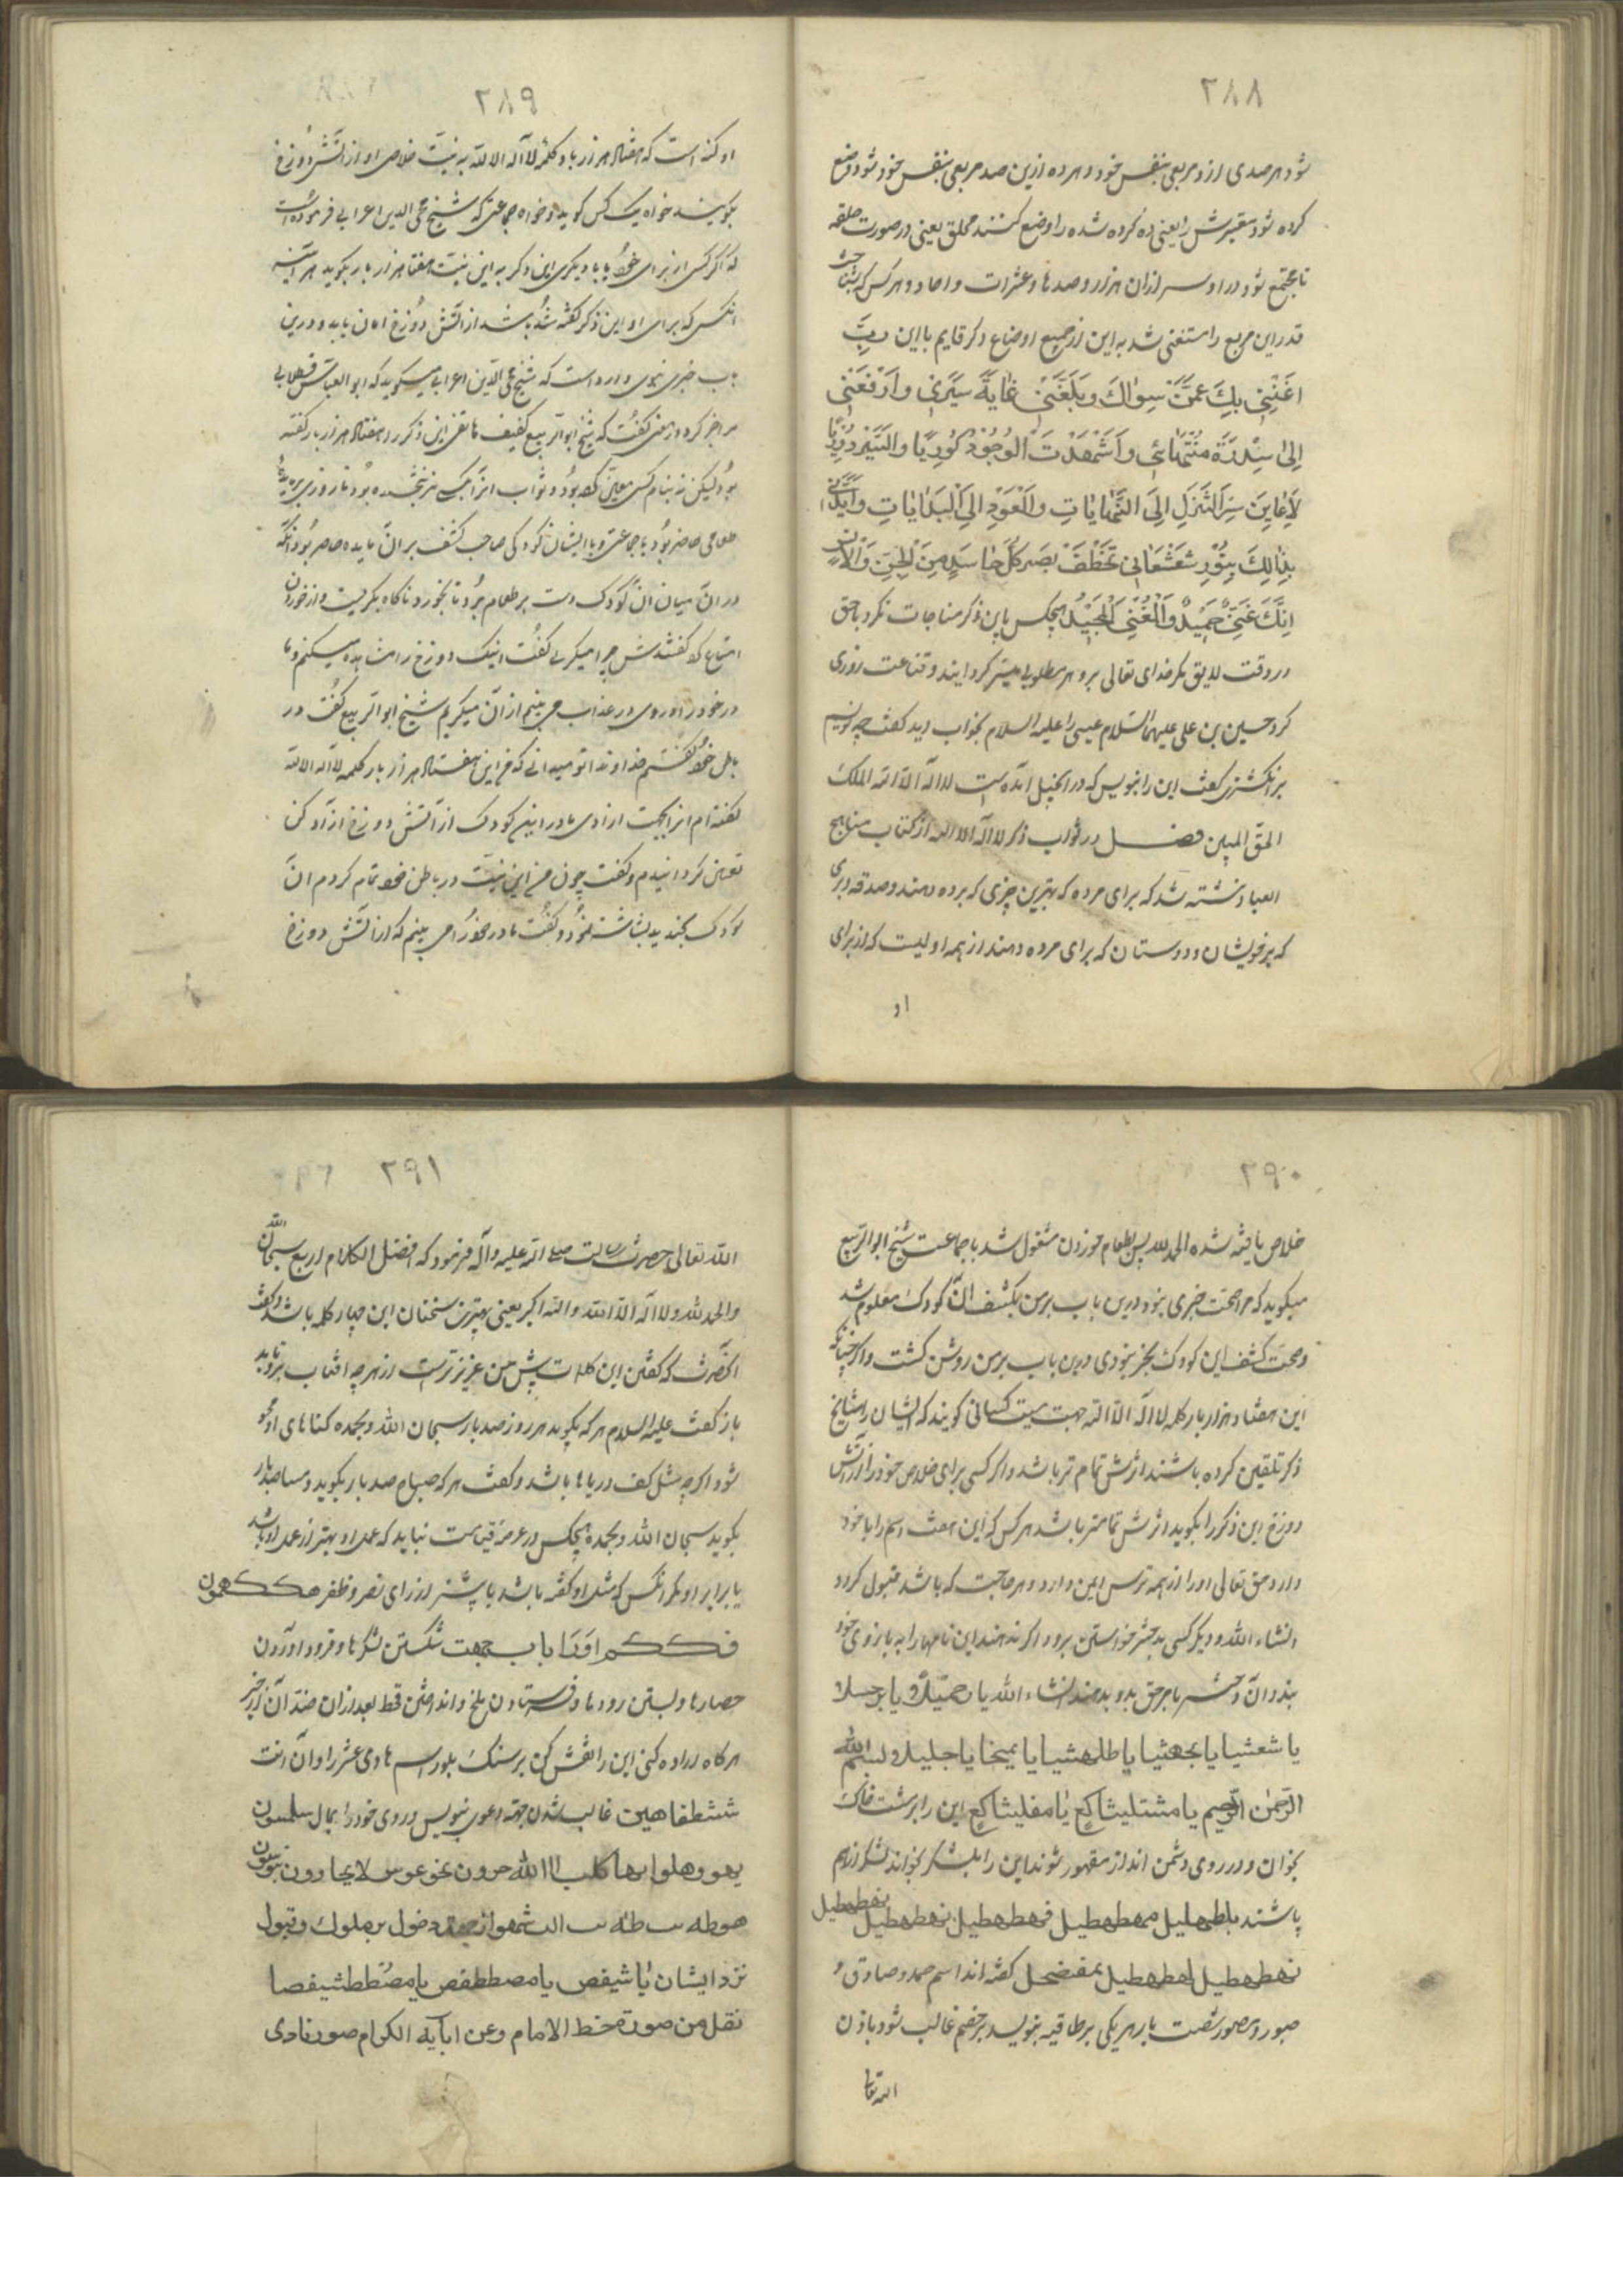 ٢٨٨
شود هر صدی ازو مربعی بنفس خود و هر ده ازین صد مربعی بنفس خود شود وضع
کرده شود متعیرش را یعنی ده کرده شده را وضع کنند محلق یعنی در صورت حلقه
تا مجتمع شود در او سر ازان هزار و صدها و عشرات و احاد و هر کس که شناخت
قدر این مربع را مستغنی شد به این از جمیع اوضاع دکر قایم با این رب
اغننی بك عمن سواك و بلغنی غایة سیری وارفعنی
الی سدرة منتهائی واشهدت الوجود
لاعاین سر التنزل الی النهایات والعود الی البدایات
بذالك بنور شعشعانی تخطف بصر کل حاسد من الجن والانس
انك غنی حمید والغنی المجید هیچکس باین ذکر مناجات نکرد با حق
در وقت لایق مکر خدای تعالی برو هر مطلوبی میسر کردانند و قناعت روزی
کرد حسین بن علی علیهما السلام عیسی را علیه السلام بخواب دید کفت چه نویسیم
بر انکشتری کفت این را بنویس که در انجیل آمده است لا اله الا الله الملك
الحق المبین فصل در ثواب ذکر لا اله الا الله از کتاب مناهج
العباد نبشته شد که برای مرده که بهترین چیزی که برده دهند و صدقه و بری
که بر خویشان و دوستان که برای مرده دهند از همه اولیست که از برای
او
٢٨٩
او کفته است که هفتاد هزار بار کلمه لا اله الا الله به نیت خلاص او از اتش دوزخ
بکویند خواه یک کس کوید و خواه جماعتی که شیخ محی الدین اعرابی فرموده است
که اکر کسی از برای خود یا با دیکری این ذکر به این نیت هفتاد هزار بار بکوید هر آینه
انکس که برای او این ذکر کفته شده باشد از اتش دوزخ امان یابد و درین
باب خبری نبوی وارد است که شیخ محی الدین اعرابی میکوید که ابو العباس قسطلانی
مرا خبر کرد و از من کفت که شیخ ابو الربیع کفیف مالقی این ذکر را هفتاد هزار بار کفته
بود لیکن نه بنام کسی معین کرده بود و ثواب انرا بکسی نبخشیده بود تا روزی بر مایده
طعامی حاضر بود با جماعتی و با ایشان کودکی صاحب کشف بر ان مایده حاضر بود انکه
در ان میان ان کودک دست بر طعام برد تا بخورد ناکاه بکریست و از خوردن
امتناع کرد کفتندش چرا میکریی کفت اینک دوزخ را مشاهده میکنم و ما
در خود را در وی در عذاب می بینم از ان میکریم شیخ ابو الربیع کفت در
باطن خود کفتم خداوندا تو میدانی که من این هفتاد هزار بار کلمه لا اله الا الله
کفته ام انرا بجهت ازادی مادر این کودک از اتش دوزخ ازاد کن
تعین کردانیدم و کفت چون من این نیت در باطن خود تمام کردم ان
کودک بخندید بشاشت نمود و کفت مادر خود را می بینم که از اتش دوزخ
٢٩٠
خلاص یافته شده الحمد لله پس بطعام خوردن مشغول شد با جماعت شیخ ابو الربیع
میکوید که مرا صحت خبری نبود درین باب بر من بکشف ان کودک معلوم شد
و صحت کشف این کودک بخبر نبوی درین باب بر من روشن کشت و اکر چنانکه
این هفتاد هزار بار کلمه لا اله الا الله جهت میت کسانی کویند که ایشان را مشایخ
ذکر تلقین کرده باشند اثرش تمام تر باشد و اکر کسی برای خلاص خود را از آتش
دوزخ این ذکر را بکوید اثرش تمامتر باشد هر کس که این هفت اسم را با خود
دارد حق تعالی او را از همه ترس ایمن دارد و هر حاجت که باشد قبول کردد
انشاء الله و دیکر کسی بدختر خواستن برود اکر ندهند این نامها را به بازوی خود
بندد ان دختر با هر حق بدو بدهند انشاء الله یا
یا شعثیا یا بجهثیا یا طلهثیا یا یمیخا یا جلیلا و لبسم الله
الرحمن الرحیم یا مشتلیثا کع یا مفلیشا کع این را بر مشت خاک
بخوان و در روی دشمن انداز مقهور شوند این را بلشکر بخواند لشکر از هم
پاشند باطهلیل مهطهطیل فهطهطیل نهطهطیل
نهطهطیل لهطهطیل بمفضحل کفته اند اسم صمد و صادق و
صبور و مصور شصت بار هر یکی بر طاقیه بنویسد بر خصم غالب شود باذن
الله تعالی
٢٩١
الله تعالی حضرت رسالت صلی الله علیه و آله فرمود که افضل الکلام اربع سبحان الله
والحمد لله ولا اله الا الله والله اکبر یعنی بهترین سخنان این چهار کلمه باشد و کفت
انحضرت که کفتن این کلمات پیش من عزیزتر است از هر چه افتاب برو تابد
باز کفت علیه السلام هر که بکوید هر روز صد بار سبحان الله وبحمده کناهای او محو
شود اکر چه مثل کف دریاها باشد و کفت هر که صباح صد بار بکوید و مسا صد بار
بکوید سبحان الله وبحمده هیچکس در عرصه قیامت نیاید که عمل او بهتر از عمل او باشد
یا برابر او مکر انکس که مثل او کفته باشد یا بیشتر از برای نصر و ظفر
باب جهت شکستن لشکرها و فرود اوردن
حصارها و بستن رودها و فرستادن ملخ و انداختن قحط بعد ازان
هر کاه اراده کنی این را نقش کن بر سنک بلور اسم هادی عشر را و آن انت
ششطفاهین غالب شدن جهة دعوی بنویس در روی خود را بمال
هوطه طه الشموا از جهة دخول بر ملوك و قبول
نزد ایشان یا شیفص یا مصططفص یا مصططشیفصا
نقل من صورة خط الامام وعن ابآیه الکرام صور نادی